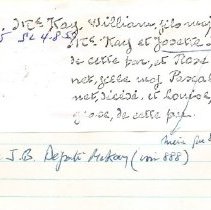 McKay, William, fils maj
5 Sc 4-8-59 McKay et Josette
de cette par., et Rose
net, fille maj Pascal
net, décédé, et Louise
g'ave, de cette par.
mère que
J.B. Depatie McKay (voir 888)